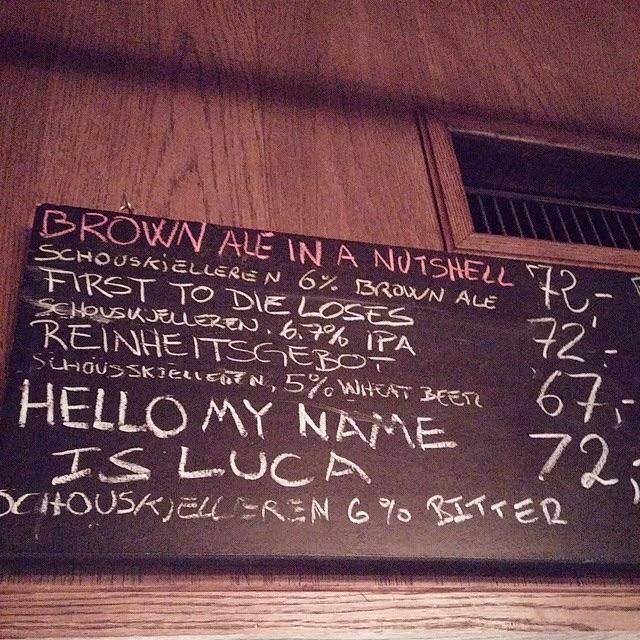 BROWN ALE IN A NUTSHELL 72,-
SCHOUSKJELLEREN 6% BROWN ALE
FIRST TO DIE LOSES 72,-
SCHOUSKJELLEREN, 6.7% IPA
REINHEITSGEBOT 67,-
SCHOUSSKJELLEREN, 5% WHEAT BEER
HELLO MY NAME 72,-
IS LUCA
SCHOUSKJELLEREN 6% BITTER